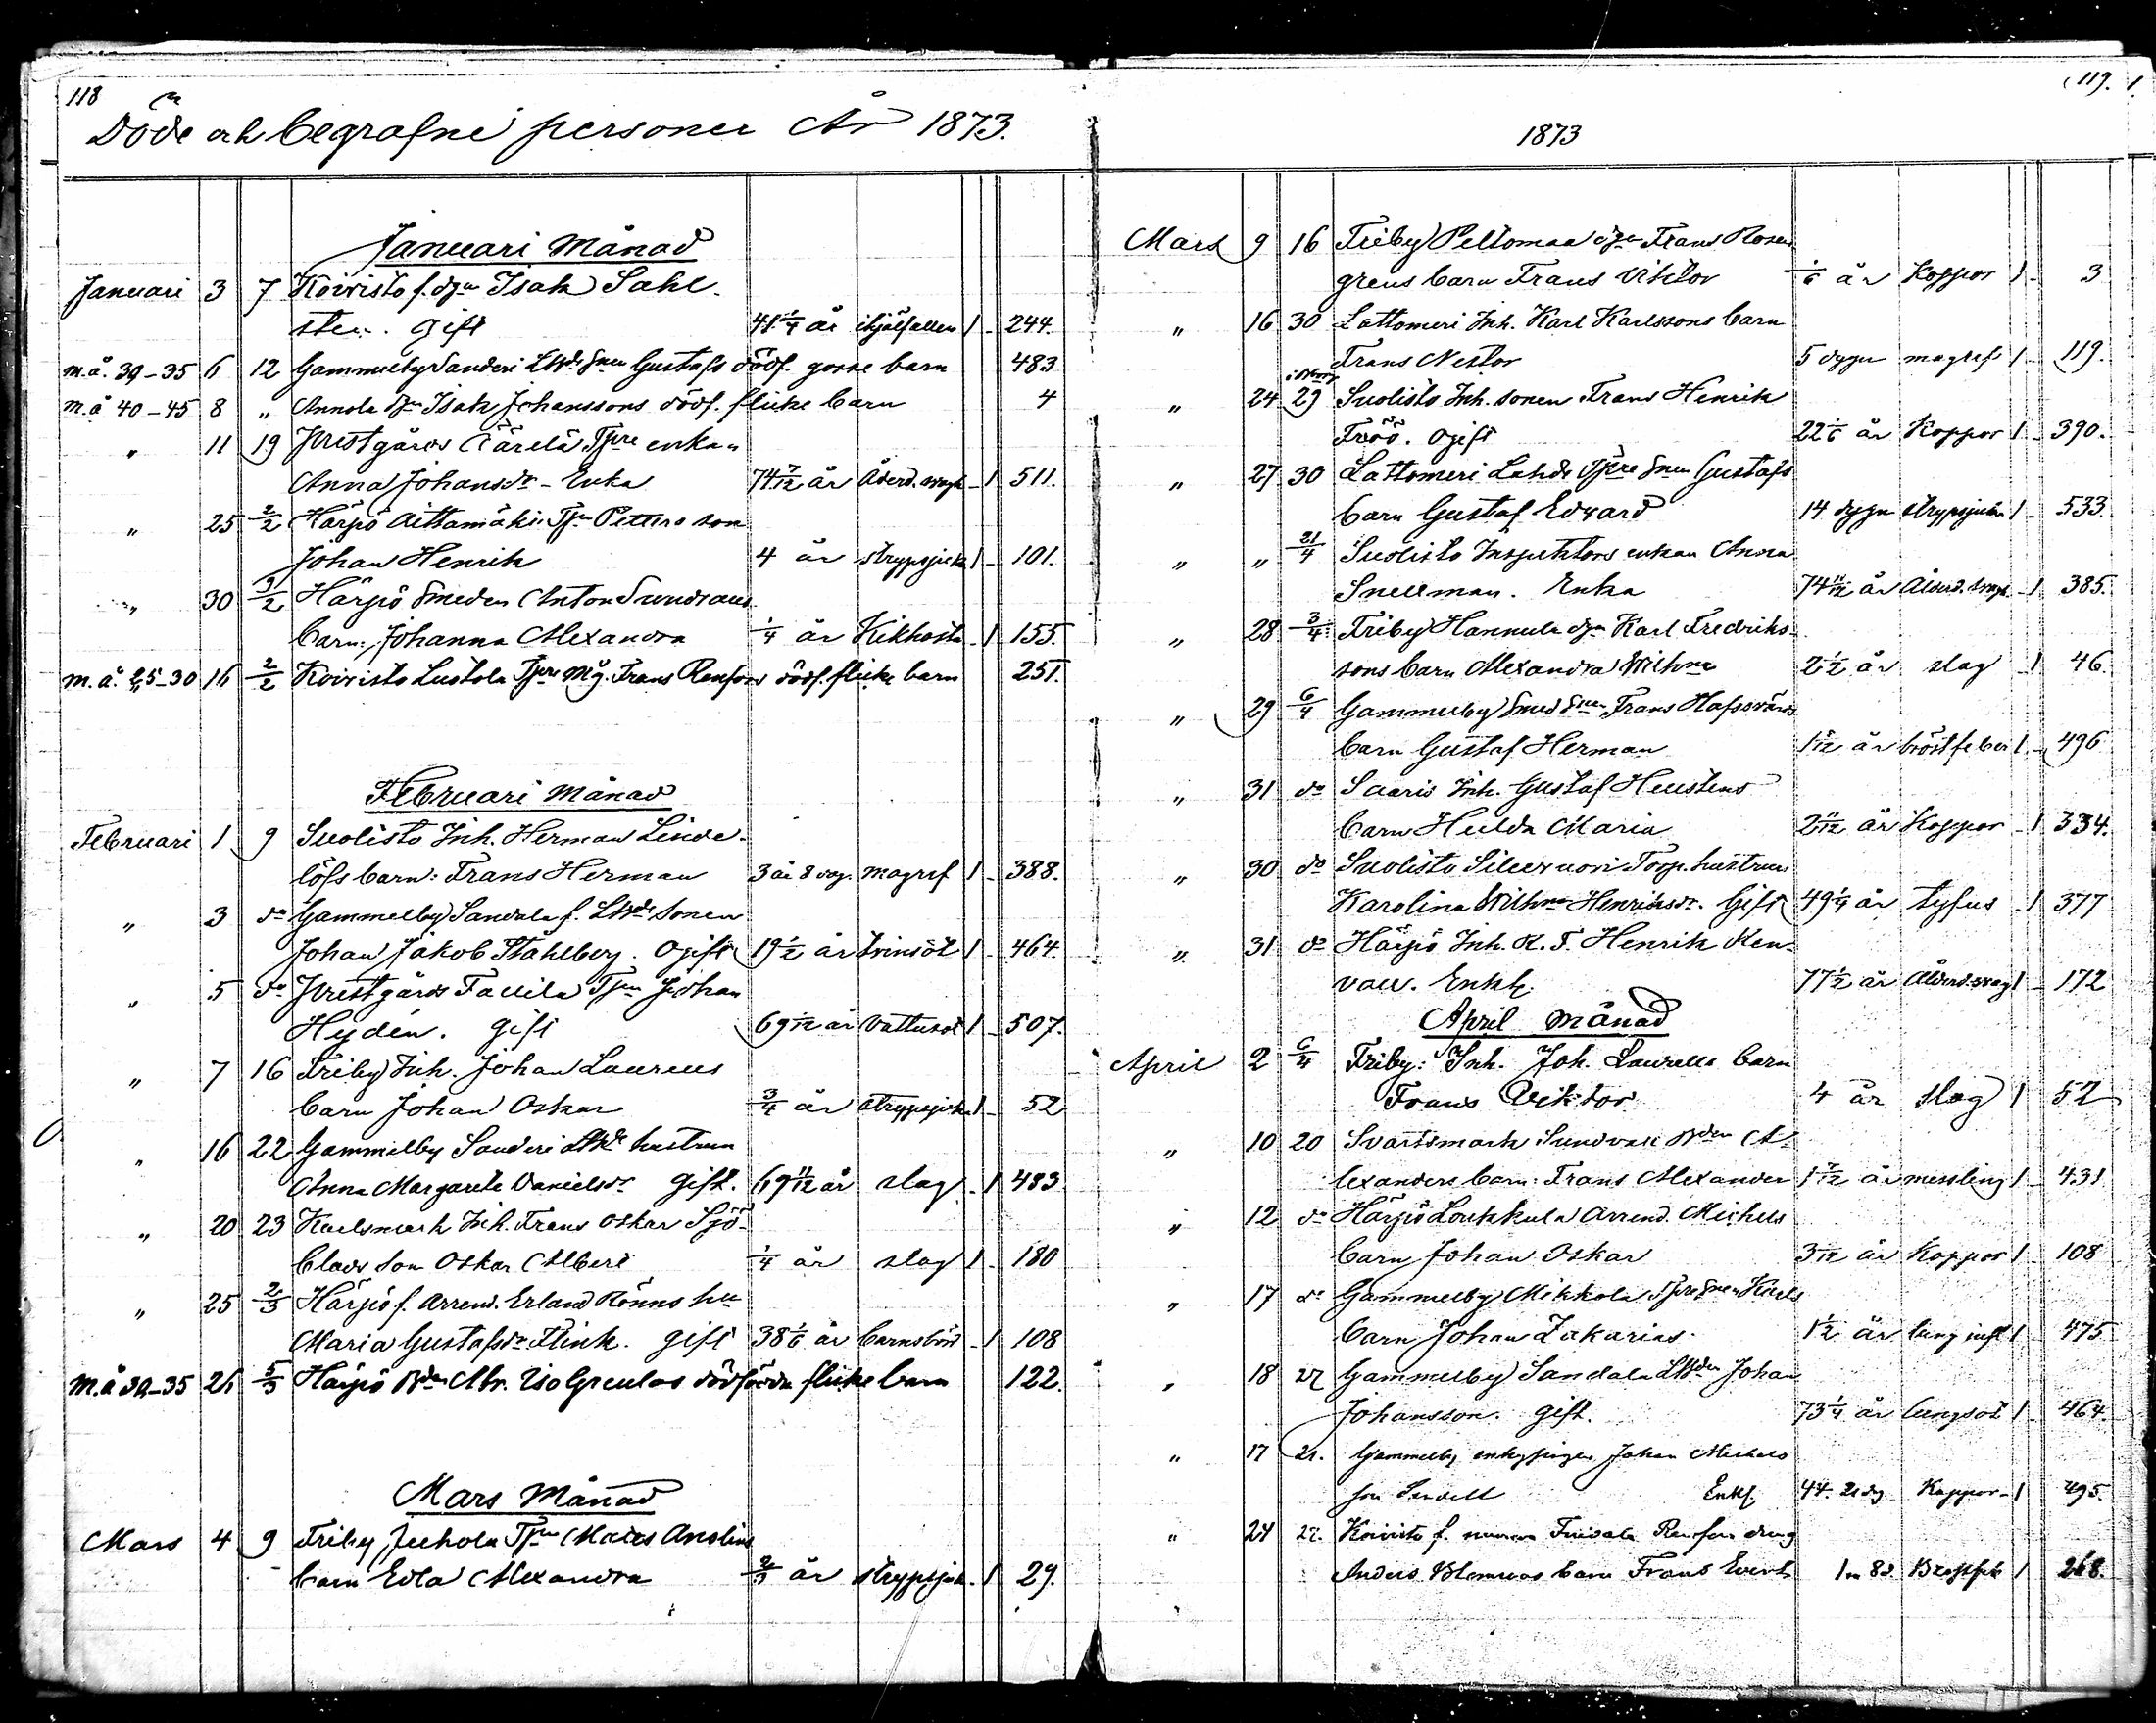 118
Döde och begrafne personer År 1873.
Januari Månad
Januari 3 7 Koivisto f. dgn Isak Sahl-
sten. Gift 41 1/4 år ihjälfallen 1 244.
m.å. 30-35 6 12 Gammelby Sanderi Gustafs dödf. gosse barn 483
m.å 40-45 8 „ Annola Isak Johanssons dödf. flicke barn 4
„ 11 19 Prestgårds Tjre enkan
Anna Johansdr - Enka 74 7/12 år Ålderd. svagh 1 511.
„ 25 2/2 Härpö Aittamäki Petters son
Johan Henrik 4 år strypsjuka 1 101.
„ 30 3/2 Härpö Smeden Anton Sundvalls
barn: Johanna Alexandra 1/4 år Kikhosta 1 155.
m.å. 25-30 16 2/2 Koivisto Lustola Tjre Måg. Frans Renfors dödf. flicke barn 251.
Februari Månad
Februari 1 9 Suolisto Inh. Herman Linde-
löfs barn: Frans Herman 3 år 8 dag. magref 1 388.
„ 3 do Gammelby Sandala f. sonen
Johan Jakob Ståhlberg. Ogift 19 1/2 år tvinsot 1 464.
„ 5 do Prestgårds Tjn Johan
Hydén. gift 69 1/12 år Vattusot 1 507.
„ 7 16 Friby Inh. Johan Laurells
barn Johan Oskar 3/4 år strypsjuka 1 52
„ 16 22 Gammelby Sanderi hustrun
Anna Margareta Danielsdr gift. 69 11/12 år slag 1 483
„ 20 23 Karlsmark Inh. Frans Oskar Sjö-
blads son Oskar Albert 1/4 år slag 1 180
„ 25 2/3 Härpö f. Arrend. Erland Rönns hu
Maria Gustafsdr Flink. gift 38 1/6 år barnsbörd 1 108
m.å 30-35 26 5/3 Härpö Iso Greulas dödfödda flicke barn 122.
Mars Månad
Mars 4 9 Friby Juhola Tjn Matts Anolins
barn Edla Alexandra 2/3 år strypsjuk. 1 29.
119.
1873
Mars 9 16 Friby Peltomaa dgn Frans Rosen
grens barn Frans Viktor 1/6 år Koppor 1 3
„ 16 30 Lattomeri Inh. Karl Karlssons barn
Frans Nestor 5 dygn magref 1 119.
„ 24 29 Suolisto Inh. sonen Frans Henrik
Fröö. Ogift 22 1/6 år Koppor 1 390.
„ 27 30 Lattomeri Lahde Gustafs
barn Gustaf Edvard 14 dygn strypsjuka 1 533.
„ „ 21/4 Suolisto Inspektors enkan Anna
Snellman. Enka 74 11/12 år Ålderd. svagh 1 385.
„ 28 3/4 Friby Hannula dgn Karl Fredriks-
sons barn Alexandra Wilhna 2 1/2 år slag 1 46.
„ 29 6/4 Gammelby Smed Frans Hafsvärds
barn Gustaf Herman år bröstfeber 1 496
„ 31 do Saaris Inh. Gustaf Heustens
barn Hulda Maria 2 11/12 år Koppor 1 334.
„ 30 do Suolisto Torp. hustrun
Karolina Wilhna Henriksdr. Gift 49 1/4 år tyfus 1 377
„ 31 do Härpö Inh. K. F. Henrik Ken-
vall. Enkl. 77 1/2 år Ålderd.svag 1 172
April Månad
April 2 6/4 Friby: Inh. Joh. Laurells barn
Frans Viktor 4 år slag 1 52
„ 10 20 Svartsmark Sundvall A-
lexanders barn: Frans Alexander 1 7/12 år messling 1 431
„ 12 do Härpö Loukkula Arrend. Michels
barn Johan Oskar 3 1/12 år Koppor 1 108
„ 17 do Gammelby Mikkola Karls
barn Johan Zakarias. 1 1/2 år lung infl 1 475
„ 18 27 Gammelby Sandala Johan
Johansson. gift. 73 1/4 år lungsot 1 464.
„ 17 21. Gammelby Johan Michels
son Enkl. 44. 21 dg Koppor 1 495.
„ 24 27. Koivisto f.
Anders barn Frans Evert 1 m 8 d. 1 268.